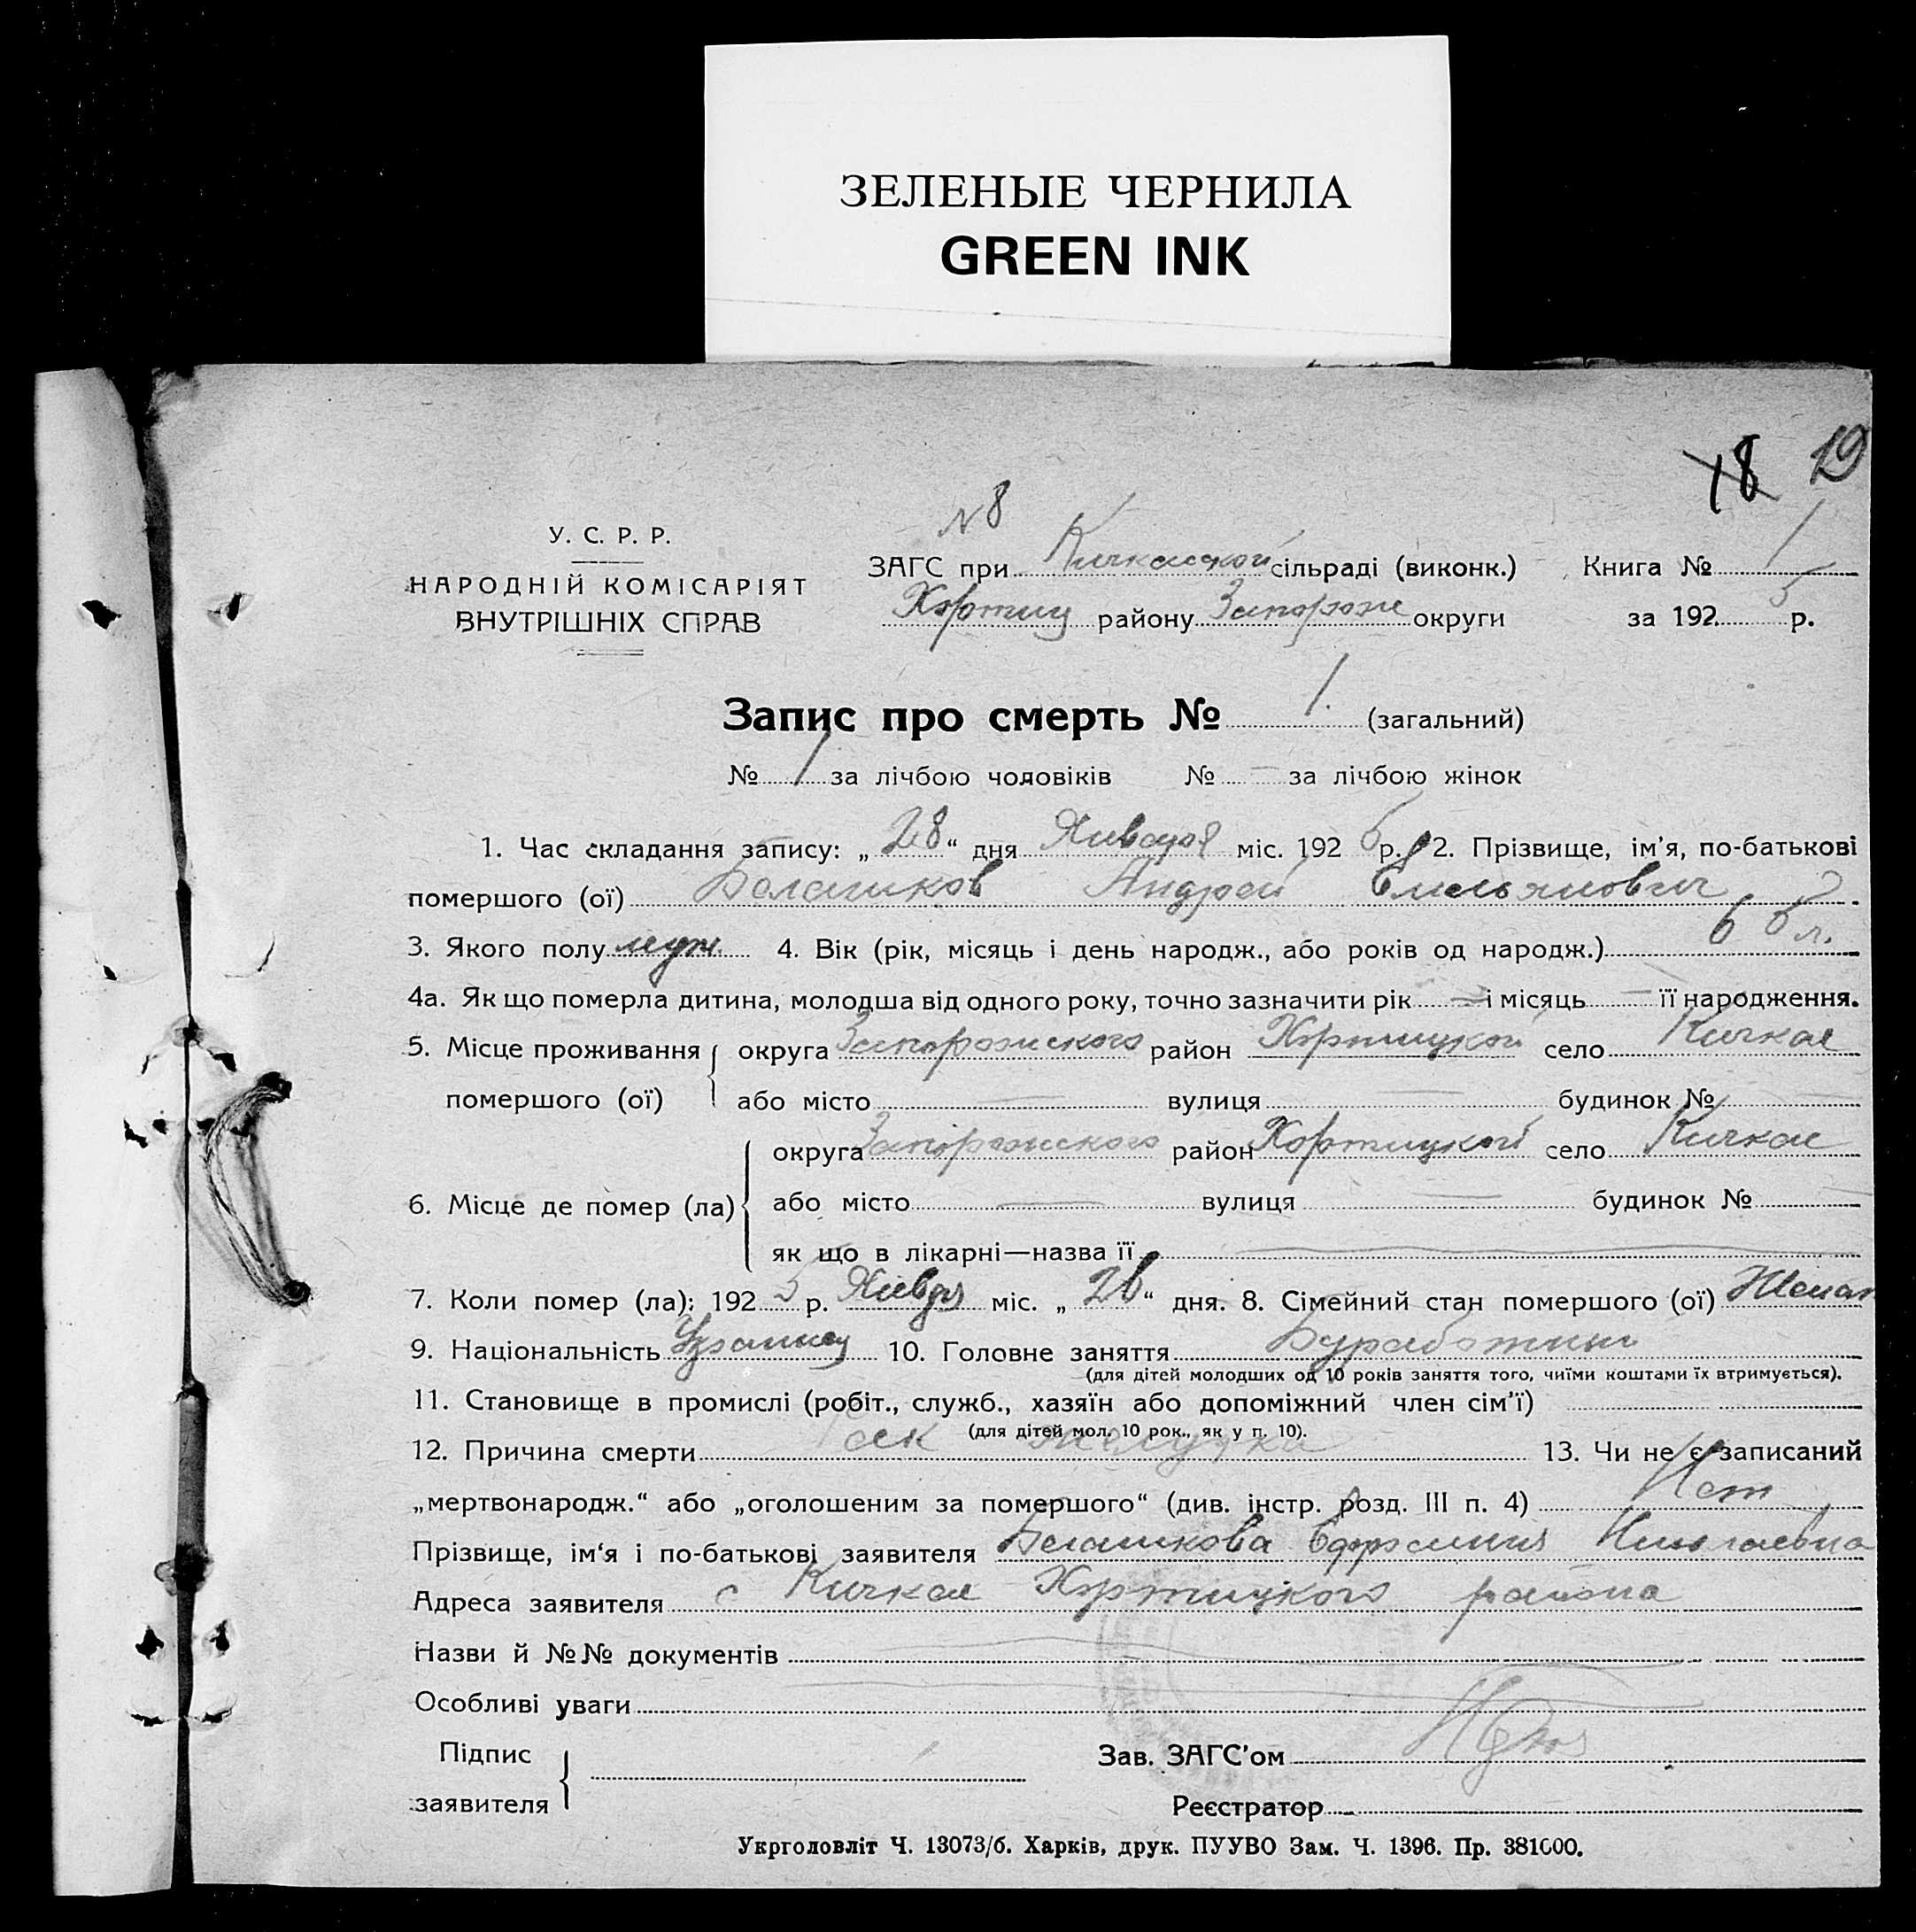 ЗЕЛЕНЫЕ ЧЕРНИЛА
GREEN INK
18 19
N 8
У. С. Р. Р.
НАРОДНІЙ КОМІСАРІЯТ
ВНУТРІШНІХ СПРАВ
ЗАГС при Кичкасской сільраді (виконк.) Книга № 1
Хортиц району Запорож округи за 1925 р.
Запис про смерть № 1. (загальний)
№ 1 за лічбою чоловіків № — за лічбою жінок
1. Час складання запису: „28“ дня Января міс. 1925 р. 2. Прізвище, ім'я, по-батькові
помершого (ої) Белашков Андрей Емельянович
3. Якого полу муж. 4. Вік (рік, місяць і день народж., або років од народж.) 65 л.
4а. Як що померла дитина, молодша від одного року, точно зазначити рік — і місяць — її народження.
5. Місце проживання округа Запорожского район Хортицкой село Кичкас
помершого (ої) або місто — вулиця — будинок № —
округа Запорожского район Хортицкой село Кичкас
6. Місце де помер (ла) або місто — вулиця — будинок № —
як що в лікарні—назва її —
7. Коли помер (ла): 1925 р. Январ міс. „26“ дня. 8. Сімейний стан помершого (ої) Женат
9. Національність Украинец 10. Головне заняття
(для дітей молодших од 10 років заняття того, чиїми коштами їх втримується).
11. Становище в промислі (робіт., служб., хазяїн або допоміжний член сім'ї)
(для дітей мол. 10 рок., як у п. 10).
12. Причина смерти Рак желудка 13. Чи не є записаний
„мертвонародж.“ або „оголошеним за помершого“ (див. інстр. розд. III п. 4) Нет
Прізвище, ім'я і по-батькові заявителя Белашкова Николаевна
Адреса заявителя с Кичкас Хортицкого района
Назви й №№ документів —
Особливі уваги —
Підпис
заявителя
Зав. ЗАГС'ом
Реєстратор
Укрголовліт Ч. 13073/б. Харків, друк. ПУУВО Зам. Ч. 1396. Пр. 381000.